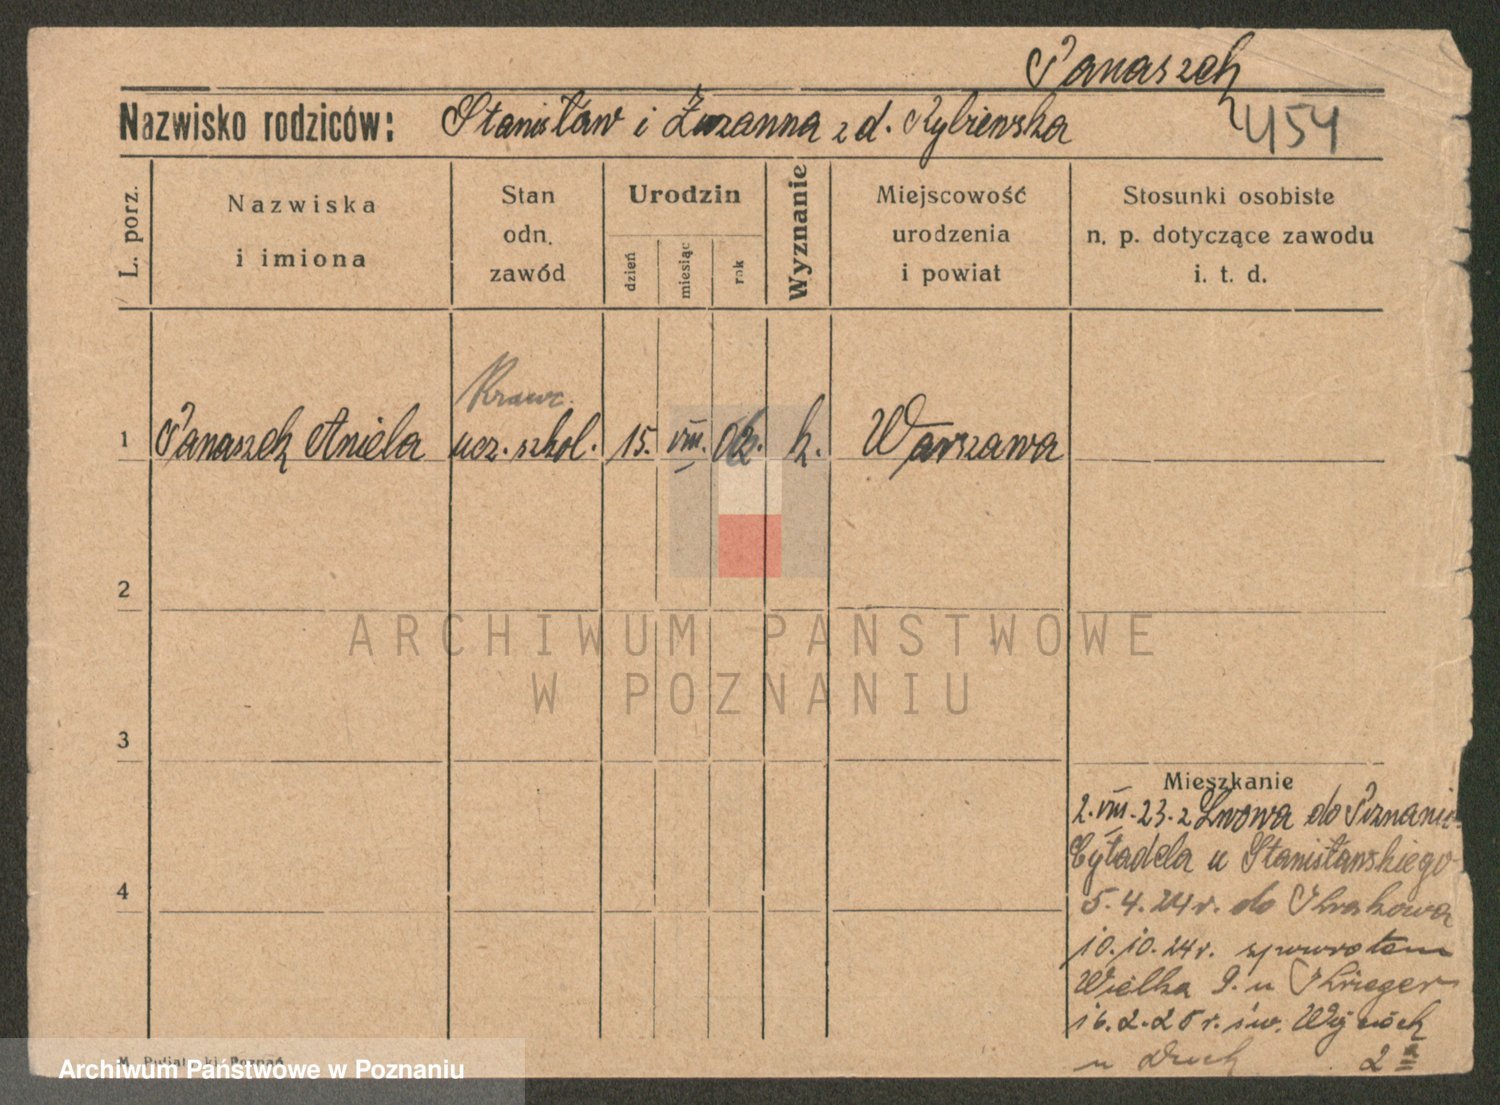 Panaszek
Nazwisko rodziców: Stanisław i Zuzanna z d. Rybiewska 454
L. porz.
Nazwiska i imiona
Stan odn. zawód
Urodzin
dzień miesiąc rok
Wyznanie
Miejscowość urodzenia i powiat
Stosunki osobiste n. p. dotyczące zawodu i. t. d.
Krawc.
1 Panaszek Aniela ucz. szkol. 15. VIII. 02. k. Warszawa
2
ARCHIWUM PAŃSTWOWE
W POZNANIU
3
Mieszkanie
2. VIII. 23. z Lwowa do Poznania
Cytadela u Stanisławskiego
4
5. 4. 24 r. do Krakowa
10. 10. 24 r. spowrotem
Wielka 9. u Krieger
16. 2. 25 r. św. Wojciech
u 2a
Poznań
Archiwum Państwowe w Poznaniu